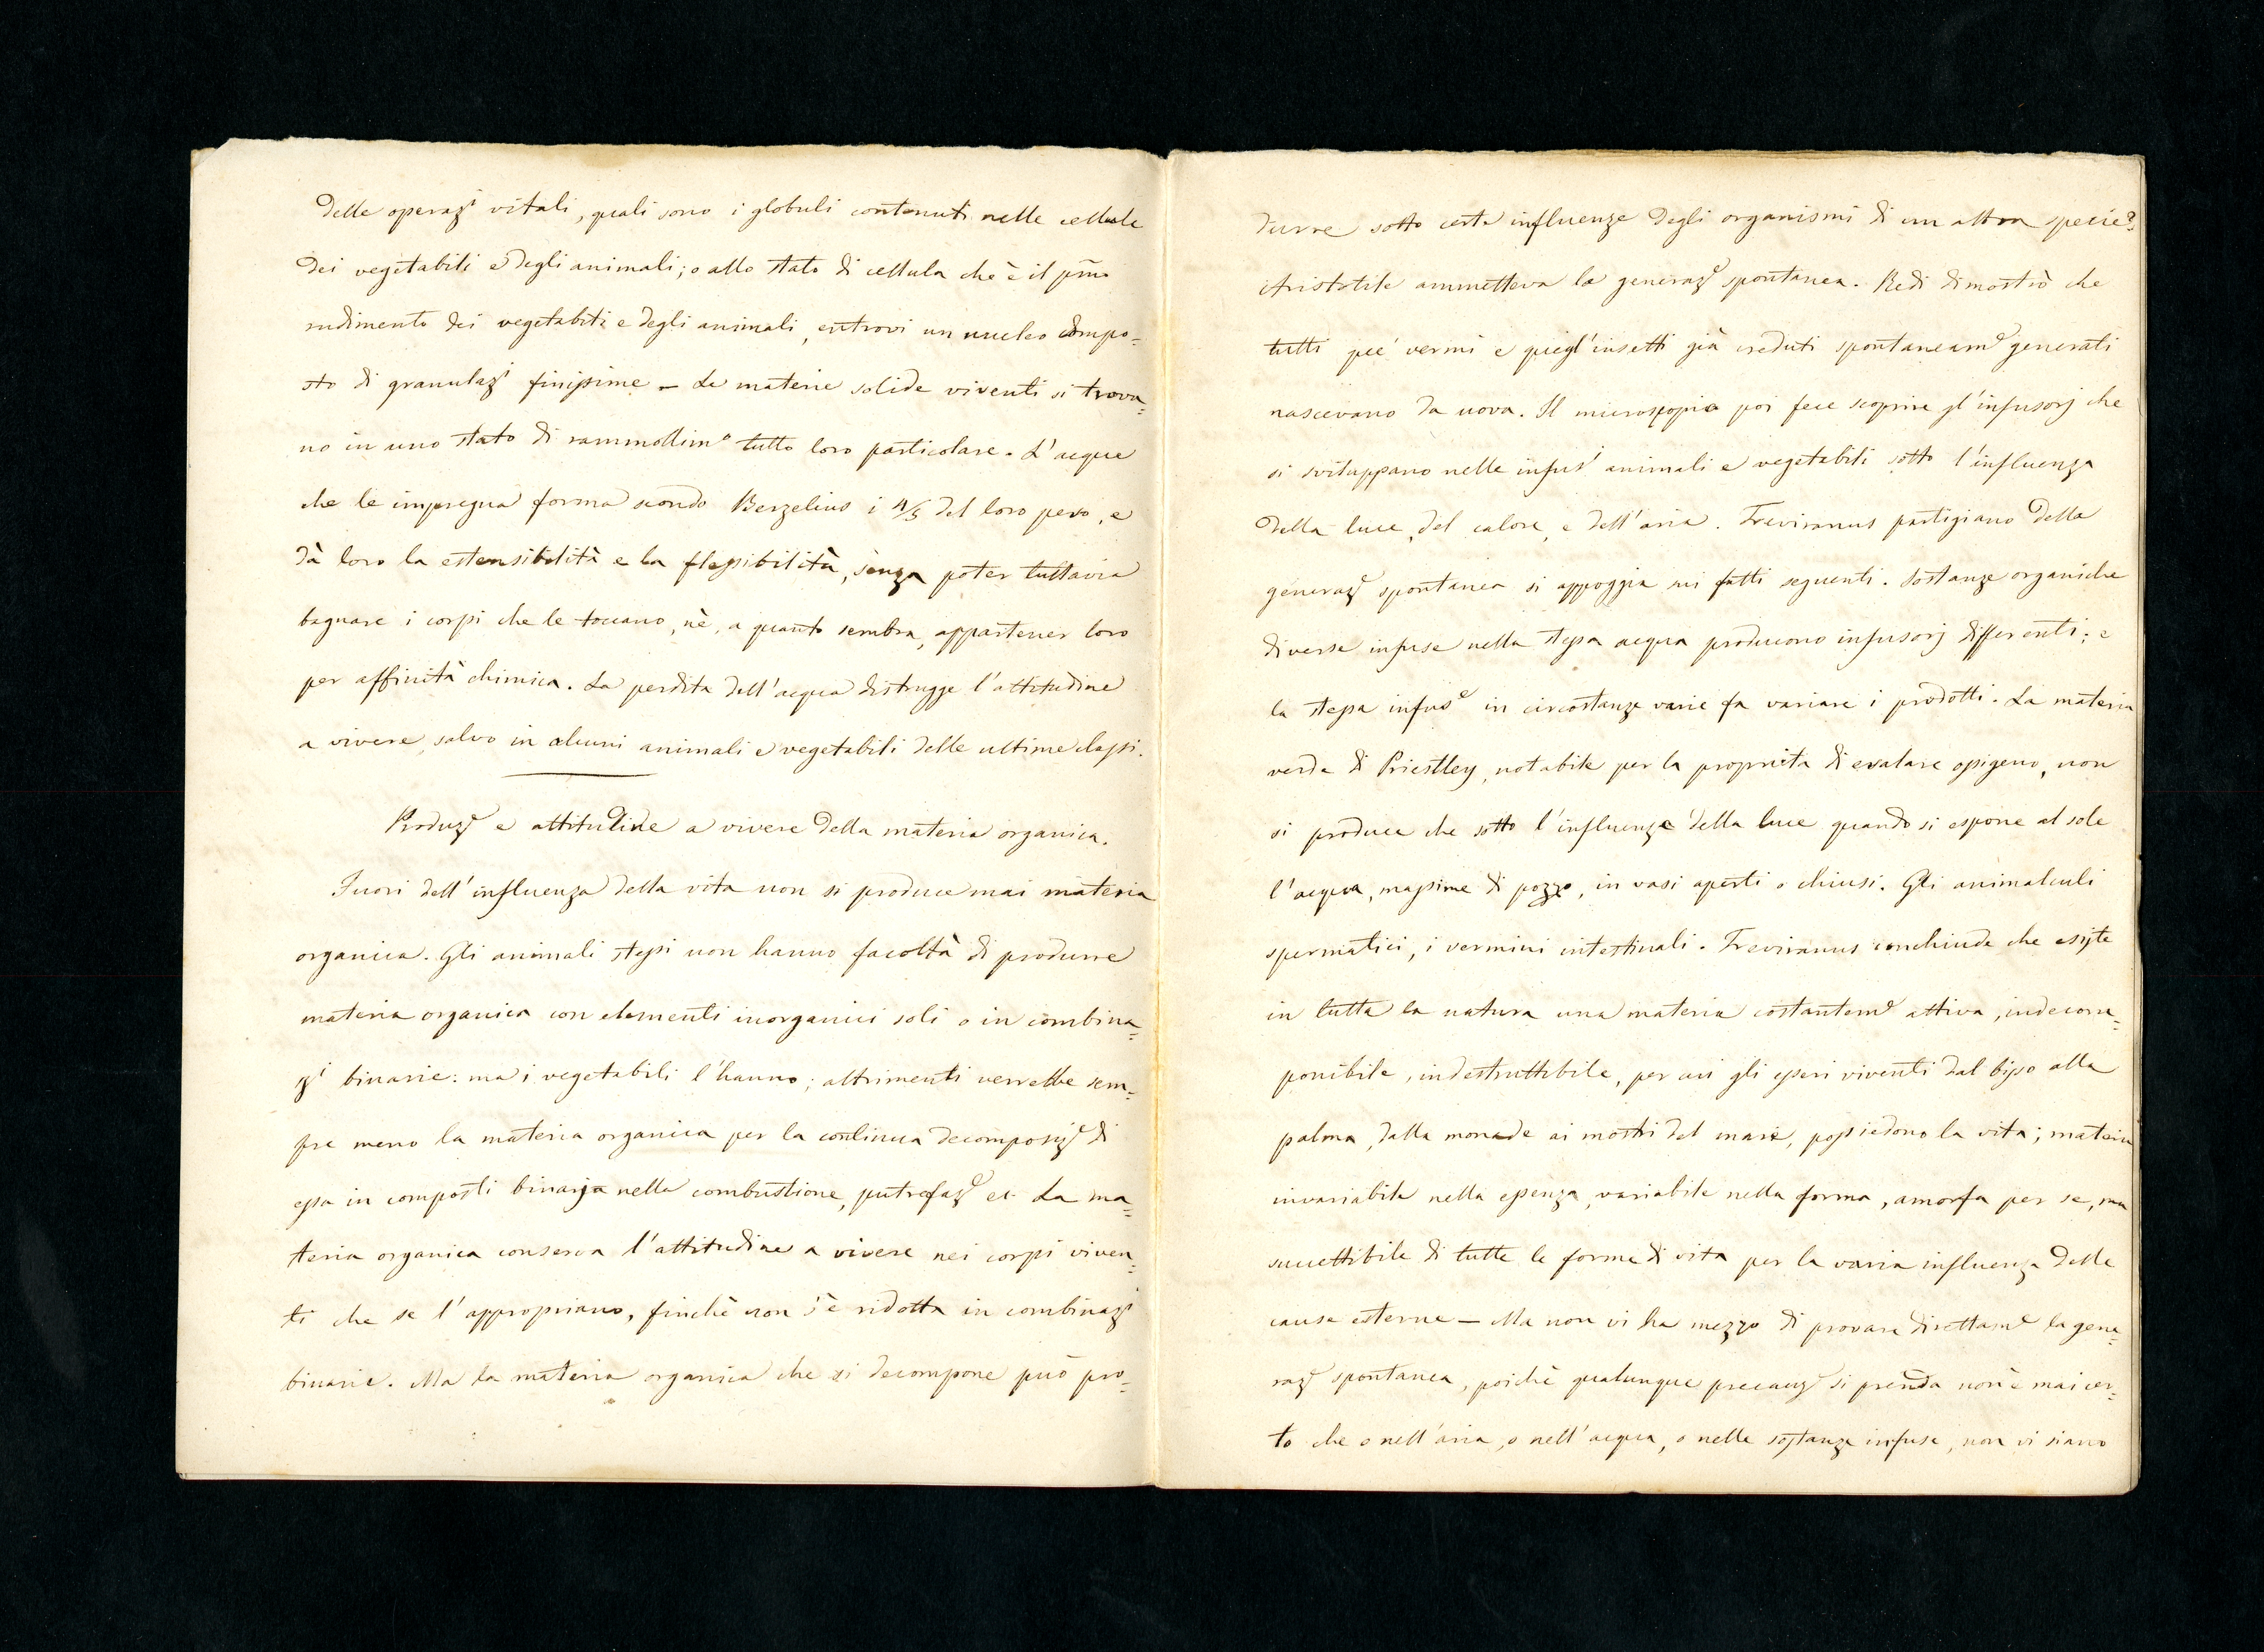 delle operazi vitali, quali sono i globuli contenuti nelle cellule
dei vegetabili e degli animali; o allo stato di cellula che è il pmo
rudimento dei vegetabili e degli animali, entrovi un nucleo compo=
sto di granulazi finissime – Le materie solide viventi si trova=
no in uno stato di rammollimo tutto loro particolare. L'acqua
che le impregna forma secondo Berzelius i 4/5 del loro peso, e
dà loro la estensibilità e la flessibilità, senza poter tuttavia
bagnare i corpi che le toccano, nè, a quanto sembra, appartener loro
per affinità chimica. La perdita dell'acqua distrugge l'attitudine
a vivere, salvo in alcuni animali e vegetabili delle ultime classi.
Produze e attitudine a vivere della materia organica.
Fuori dell'influenza della vita non si produce mai materia
organica. Gli animali stessi non hanno facoltà di produrre
materia organica con elementi inorganici soli o in combina=
zi binarie: ma i vegetabili l'hanno; altrimenti verrebbe sem=
pre meno la materia organica per la continua decomposize di
essa in composti binarj nella combustione, putrefaze ec. La ma=
teria organica conserva l'attitudine a vivere nei corpi viven=
ti che se l'appropriano, finchè non s'è ridotta in combinazi
binarie. Ma la materia organica che si decompone può pro=
durre sotto certe influenze degli organismi di un altra specie?
Aristotile ammetteva la generaze spontanea. Redi dimostrò che
tutti que' vermi e quegl'insetti già creduti spontaneame generati
nascevano da uova. Il microscopio poi fece scoprire gl'infusorj che
si sviluppano nelle infusi animali e vegetabili sotto l'influenza
della luce, del calore, e dell'aria. Treviranus partigiano della
generaze spontanea si appoggia sui fatti seguenti. Sostanze organiche
diverse infuse nella stessa acqua producono infusorj differenti; e
la stessa infuse in circostanze varie fa variare i prodotti. La materia
verde di Priestley, notabile per la proprietà di esalare ossigeno, non
si produce che sotto l'influenza della luce quando si espone al sole
l'acqua, massime di pozzo, in vasi aperti o chiusi. Gli animalculi
spermatici, i vermini intestinali. Treviranus conchiude che esiste
in tutta la natura una materia costanteme attiva, indecom=
ponibile, indestruttibile, per cui gli esseri viventi dal bisso alla
palma, dalla monade ai mostri del mare, possiedono la vita; materia
invariabile nella essenza, variabile nella forma, amorfa per se, ma
suscettibile di tutte le forme di vita per la varia influenza delle
cause esterne – Ma non vi ha mezzo di provare direttame la gene=
raze spontanea, poichè qualunque precauze si prenda non è mai cer=
to che o nell'aria, o nell'acqua, o nelle sostanze infuse, non vi siano